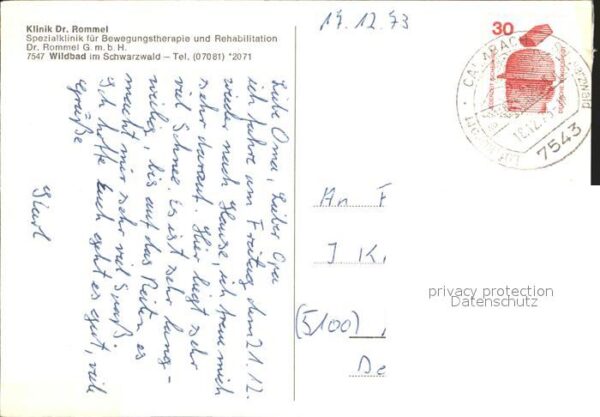 Klinik Dr. Rommel
Spezialklinik für Bewegungstherapie und Rehabilitation
Dr. Rommel G.m.b.H.
7547 Wildbad im Schwarzwald – Tel. (07081) *2071
17.12.73
30
7543
Liebe Oma, Lieber Opa
ich fahre am Freitag dem 21.12.
wieder nach Hause, ich freue mich
sehr darauf. Hier liegt sehr
viel Schnee. Es ist sehr lang-
weilig, bis auf das Reiten es
macht mir sehr viel Spaß.
Ich hoffe Euch geht es gut, viele
Grüße
An F
J K
(5100)
De
privacy protection
Datenschutz